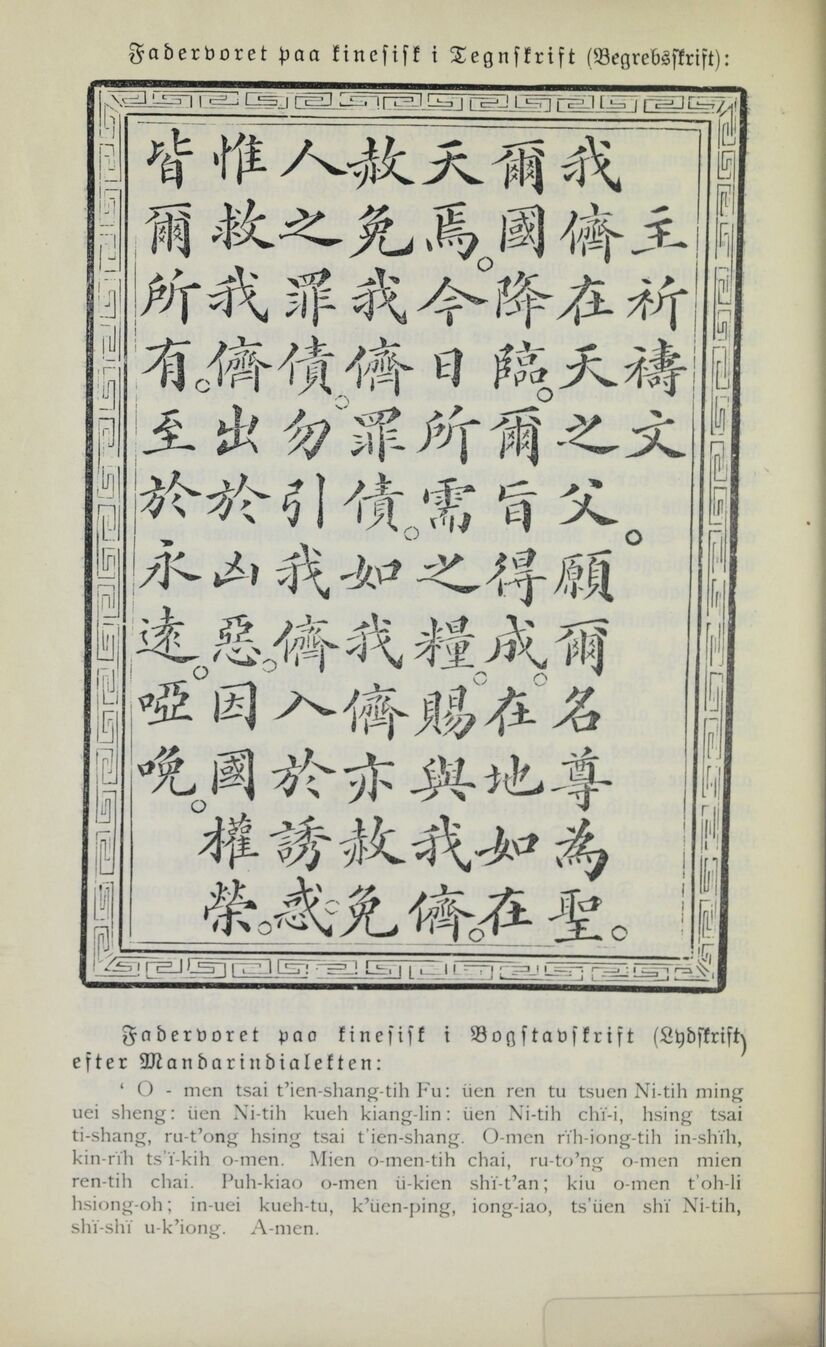 Fadervoret paa kinesisk i Tegnskrift (Begrebsskrift):
主祈禱文
我儕在天之父。願爾名尊為聖。
爾國降臨。爾旨得成。在地如在
天焉。今日所需之糧。賜與我儕。
赦免我儕罪債。如我儕亦赦免
人之罪債。勿引我儕入於誘惑。
惟救我儕出於凶惡。因國權榮。
皆爾所有。至於永遠。啞晚。
Fadervoret paa kinesisk i Bogstavskrift (Lydskrift)
efter Mandarindialekten:
‘ O - men tsai t’ien-shang-tih Fu: üen ren tu tsuen Ni-tih ming
uei sheng: üen Ni-tih kueh kiang-lin: üen Ni-tih chï-i, hsing tsai
ti-shang, ru-t’ong hsing tsai t’ien-shang. O-men rïh-iong-tih in-shïh,
kin-rïh ts’ï-kih o-men. Mien o-men-tih chai, ru-to’ng o-men mien
ren-tih chai. Puh-kiao o-men ü-kien shï-t’an; kiu o-men t’oh-li
hsiong-oh; in-uei kueh-tu, k’üen-ping, iong-iao, ts’üen shï Ni-tih,
shï-shï u-k’iong. A-men.